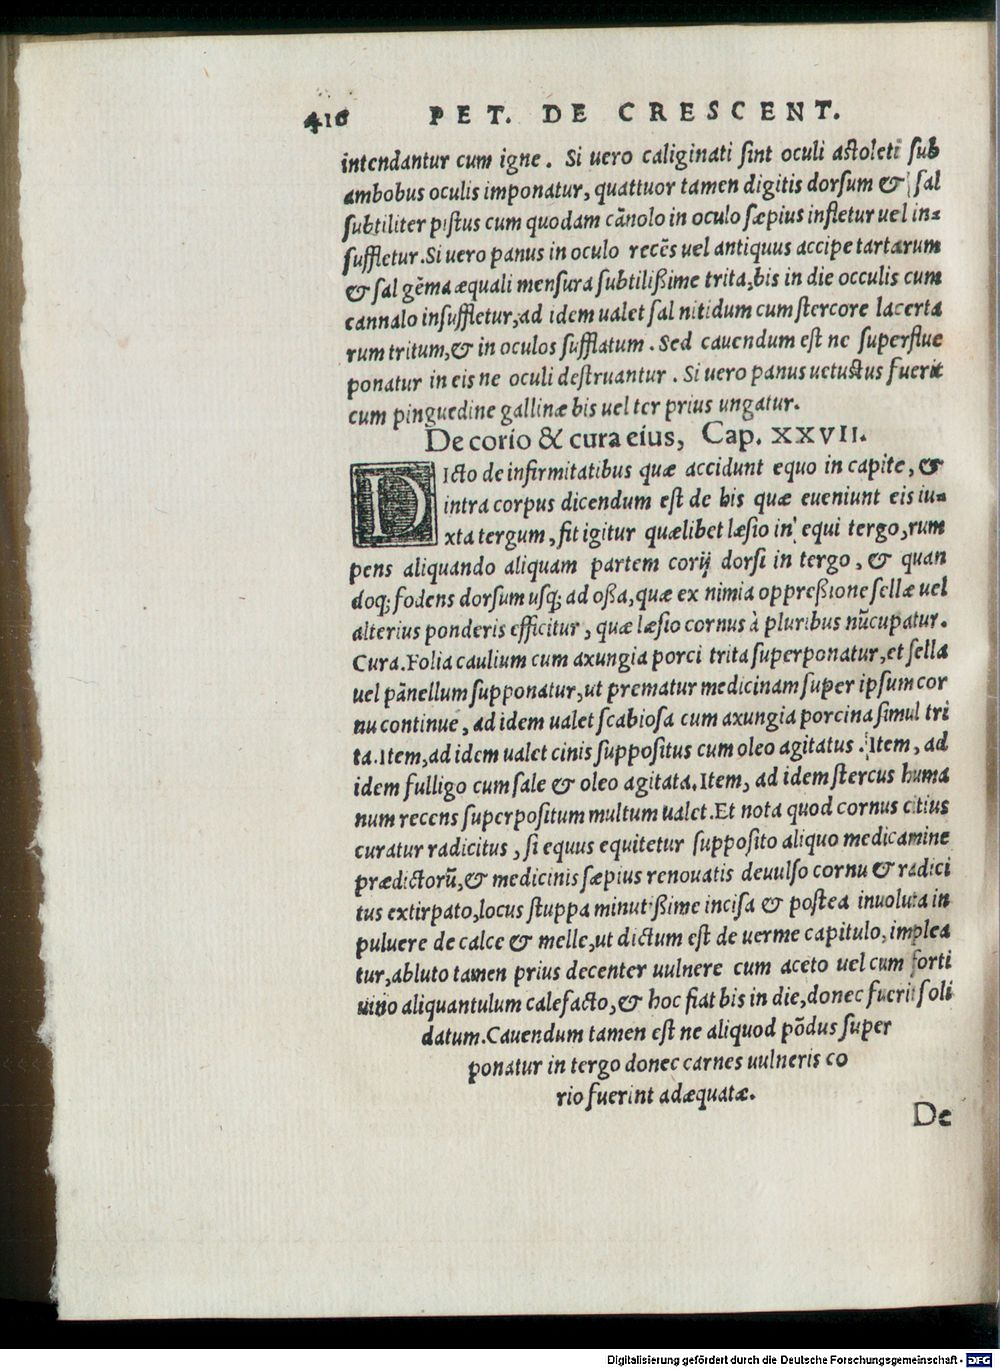 416 PET. DE CRESCENT.
intendantur cum igne. Si uero caliginati sint oculi astoleti sub
ambobus oculis imponatur, quattuor tamen digitis dorsum & sal
subtiliter pistus cum quodam cānolo in oculo sæpius infletur uel in=
suffletur. Si uero panus in oculo recēs uel antiquus accipe tartarum
& sal gēma æquali mensura subtilißime trita, bis in die occulis cum
cannalo insuffletur, ad idem ualet sal nitidum cum stercore lacerta
rum tritum, & in oculos sufflatum. Sed cauendum est ne superflue
ponatur in eis ne oculi destruantur. Si uero panus uetustus fuerit
cum pinguedine gallinæ bis uel ter prius ungatur.
De corio & cura eius, Cap. XXVII.
DIcto de infirmitatibus quæ accidunt equo in capite, &
intra corpus dicendum est de his quæ eueniunt eis iu=
xta tergum, fit igitur quælibet læsio in equi tergo, rum
pens aliquando aliquam partem corij dorsi in tergo, & quan
doq; fodens dorsum usq; ad oßa, quæ ex nimia oppreßione sellæ uel
alterius ponderis efficitur, quæ læsio cornus à pluribus nūcupatur.
Cura. Folia caulium cum axungia porci trita superponatur, et sella
uel pānellum supponatur, ut prematur medicinam super ipsum cor
nu continue, ad idem ualet scabiosa cum axungia porcina simul tri
ta. Item, ad idem ualet cinis suppositus cum oleo agitatus. Item, ad
idem fulligo cum sale & oleo agitata. Item, ad idem stercus huma
num recens superpositum multum ualet. Et nota quod cornus citius
curatur radicitus, si equus equitetur supposito aliquo medicamine
prædictorū, & medicinis sæpius renouatis deuulso cornu & radici
tus extirpato, locus stuppa minutißime incisa & postea inuoluta in
puluere de calce & melle, ut dictum est de uerme capitulo, implea
tur, abluto tamen prius decenter uulnere cum aceto uel cum forti
uino aliquantulum calefacto, & hoc fiat bis in die, donec fuerit soli
datum. Cauendum tamen est ne aliquod pōdus super
ponatur in tergo donec carnes uulneris co
rio fuerint adæquatæ.
De
Digitalisierung gefördert durch die Deutsche Forschungsgemeinschaft - DFG